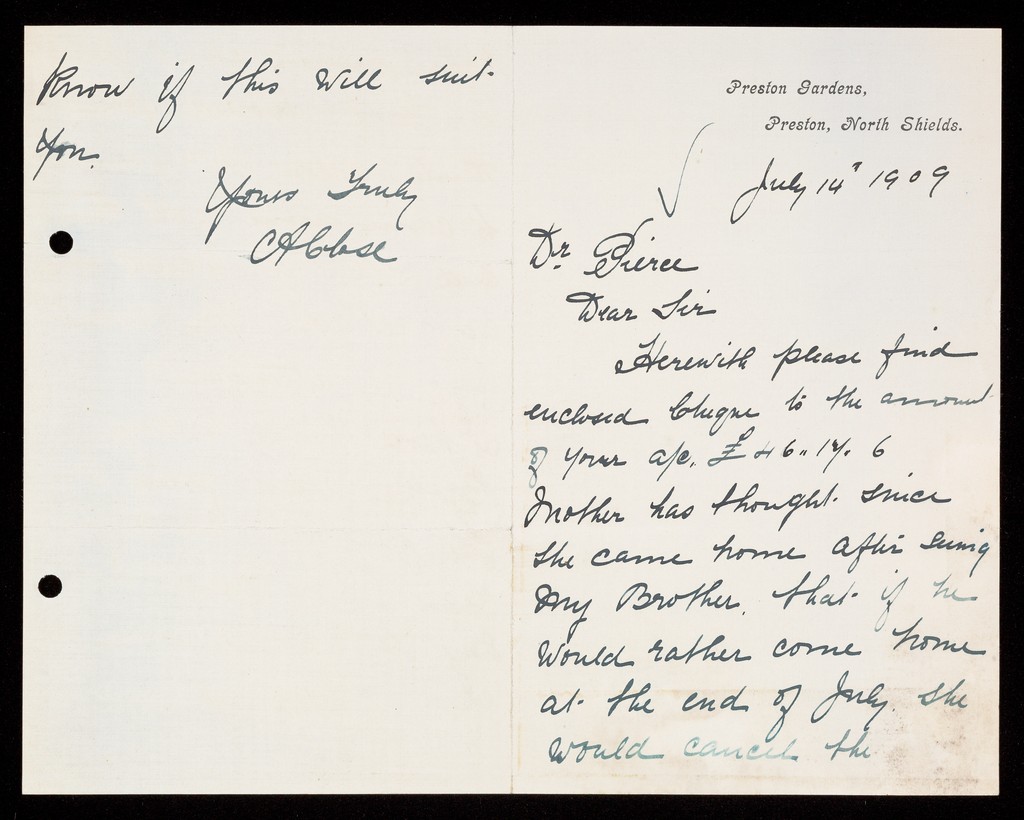 Preston Gardens,
Preston, North Shields.
July 14" 1909
Dr. Pierce
Dear Sir
Herewith please find
enclosed Cheque to the amount
of your a/c. £46.. 17. 6
Mother has thought since
she came home after seeing
my Brother, that if he
would rather come home
at the end of July. she
would cancel the
know if this will suit
you.
Yours Truly
A Close